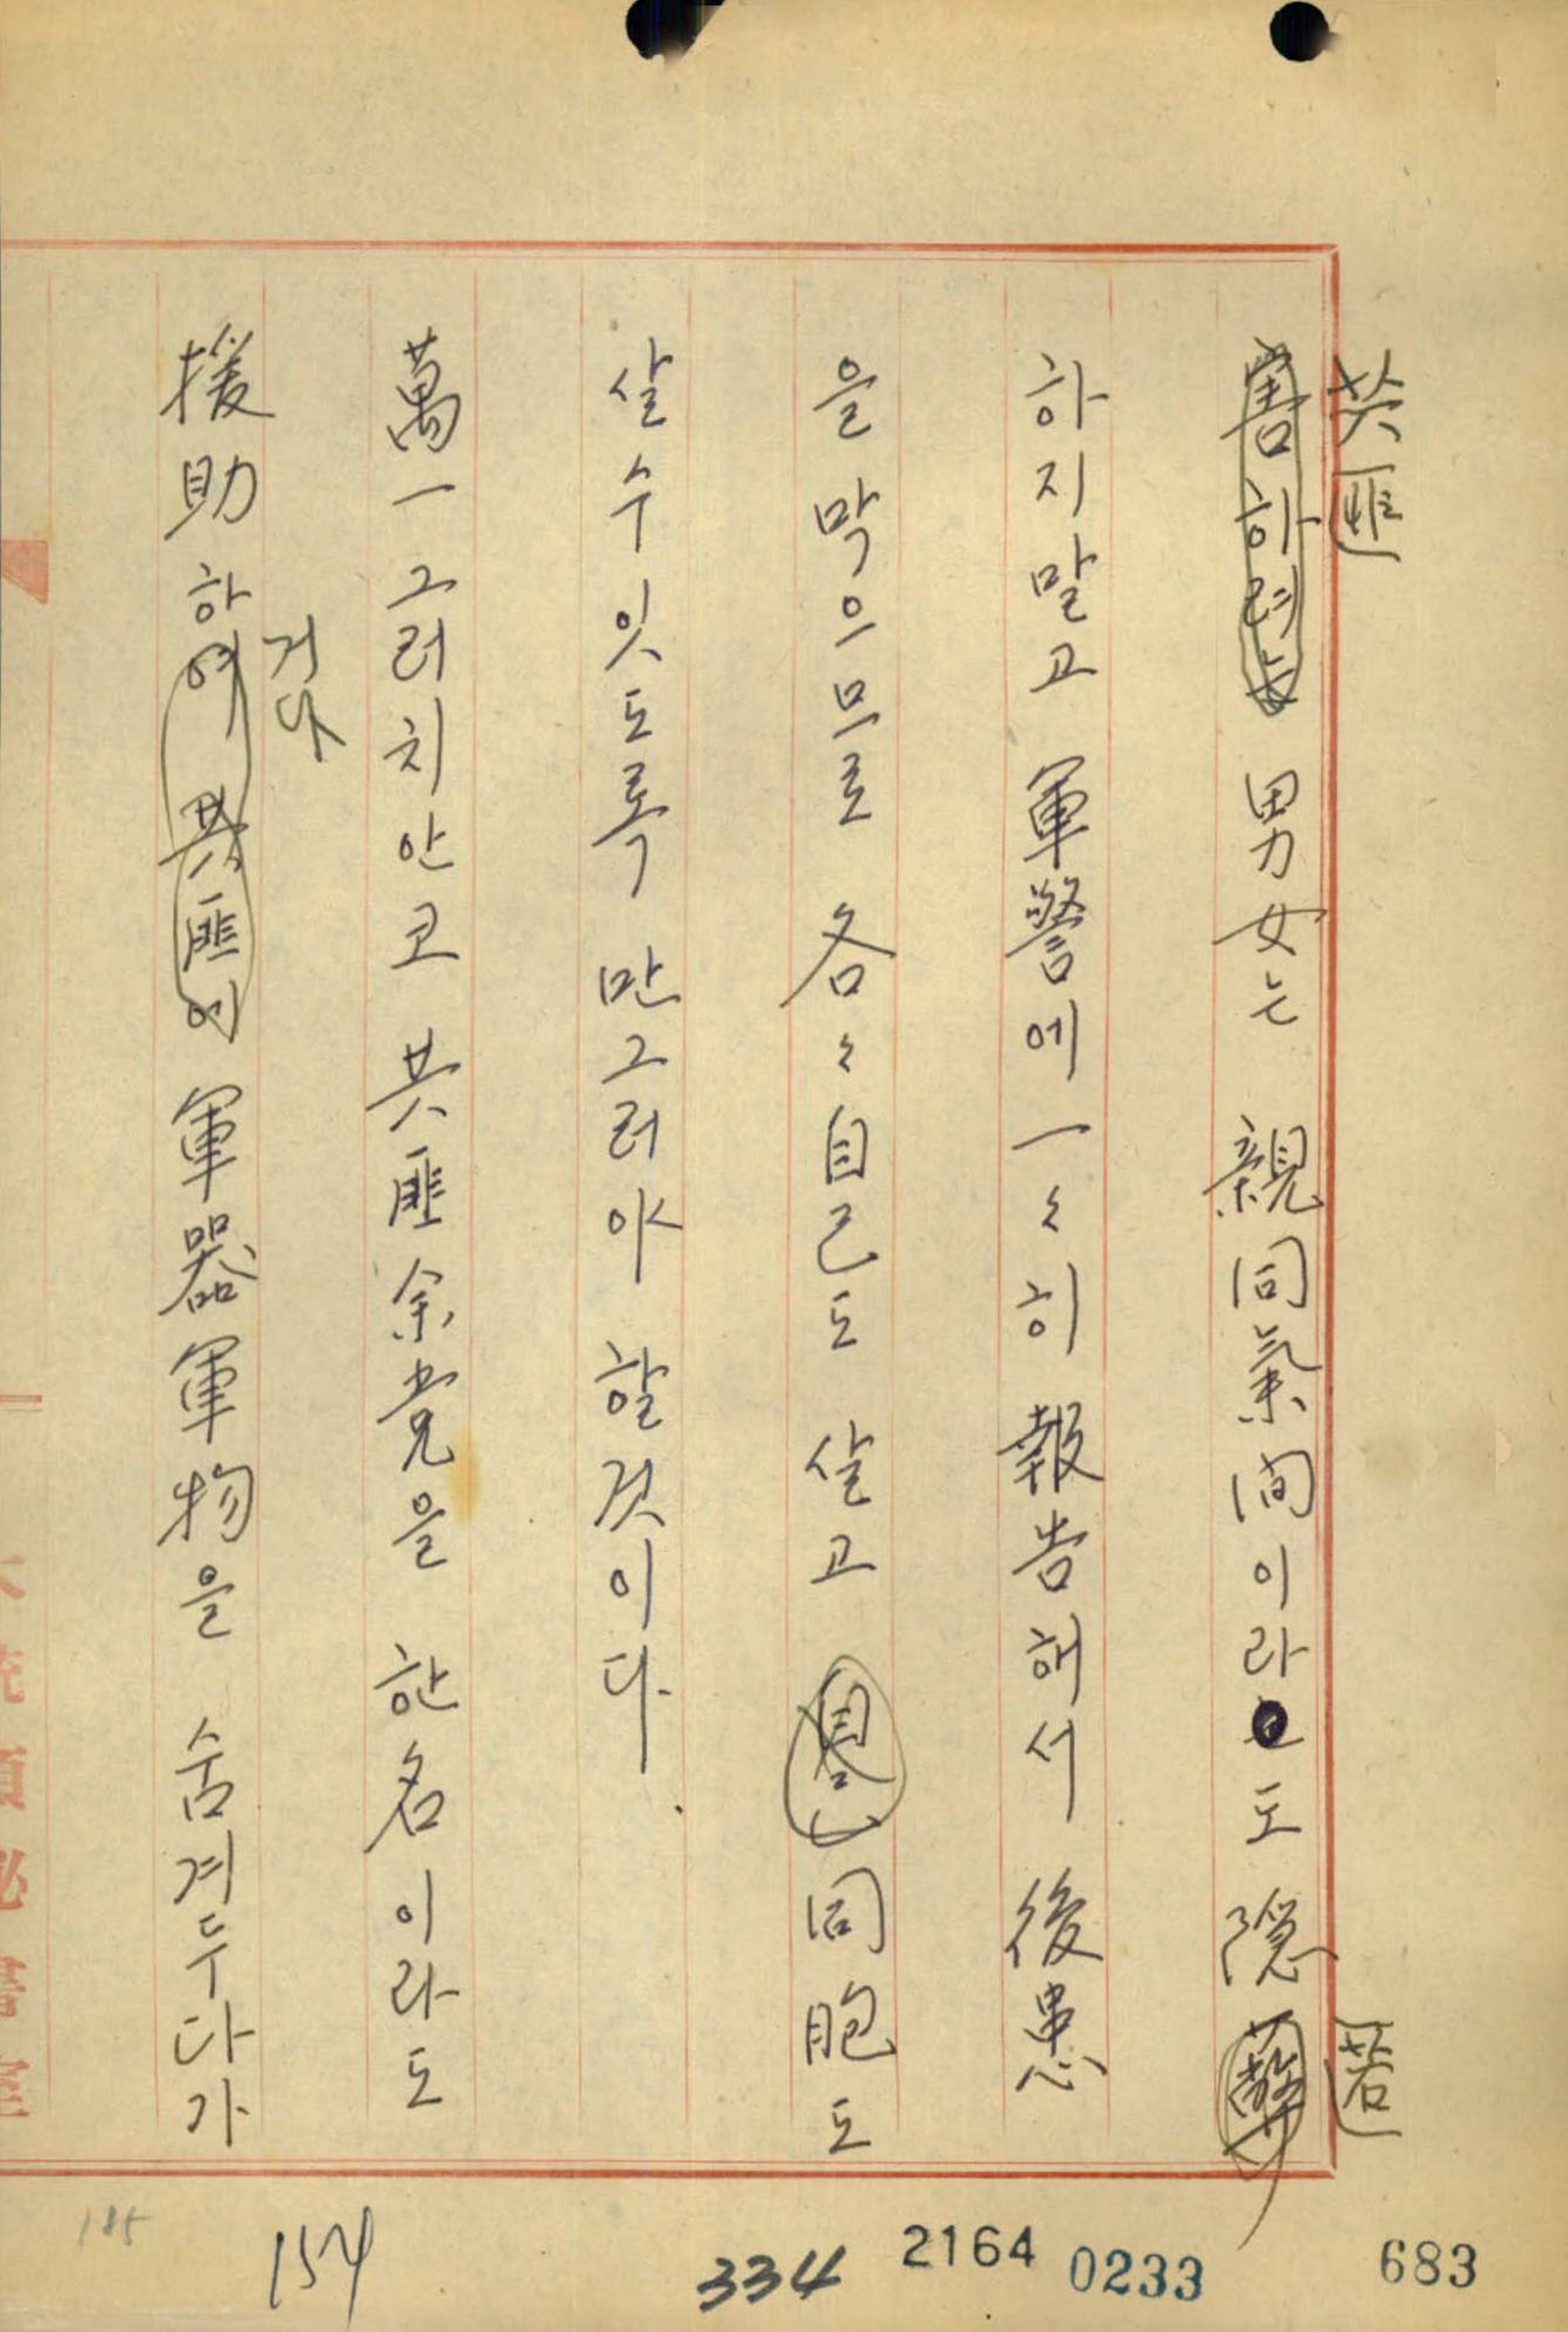 共匪
害하려는 男女는 親同氣间이라도 隠蔽
匿
하지말고 軍警에 一々히 報告해서 後患
을 막으므로 各々 自己도 살고 同胞도
살수잇도록 만그러야 할것이다.
萬一 그러치안코 共匪余党을 한名이라도
거나
援助하여 共匪이 軍器軍物을 숨겨두다가
185
154
334
2164
0233
683